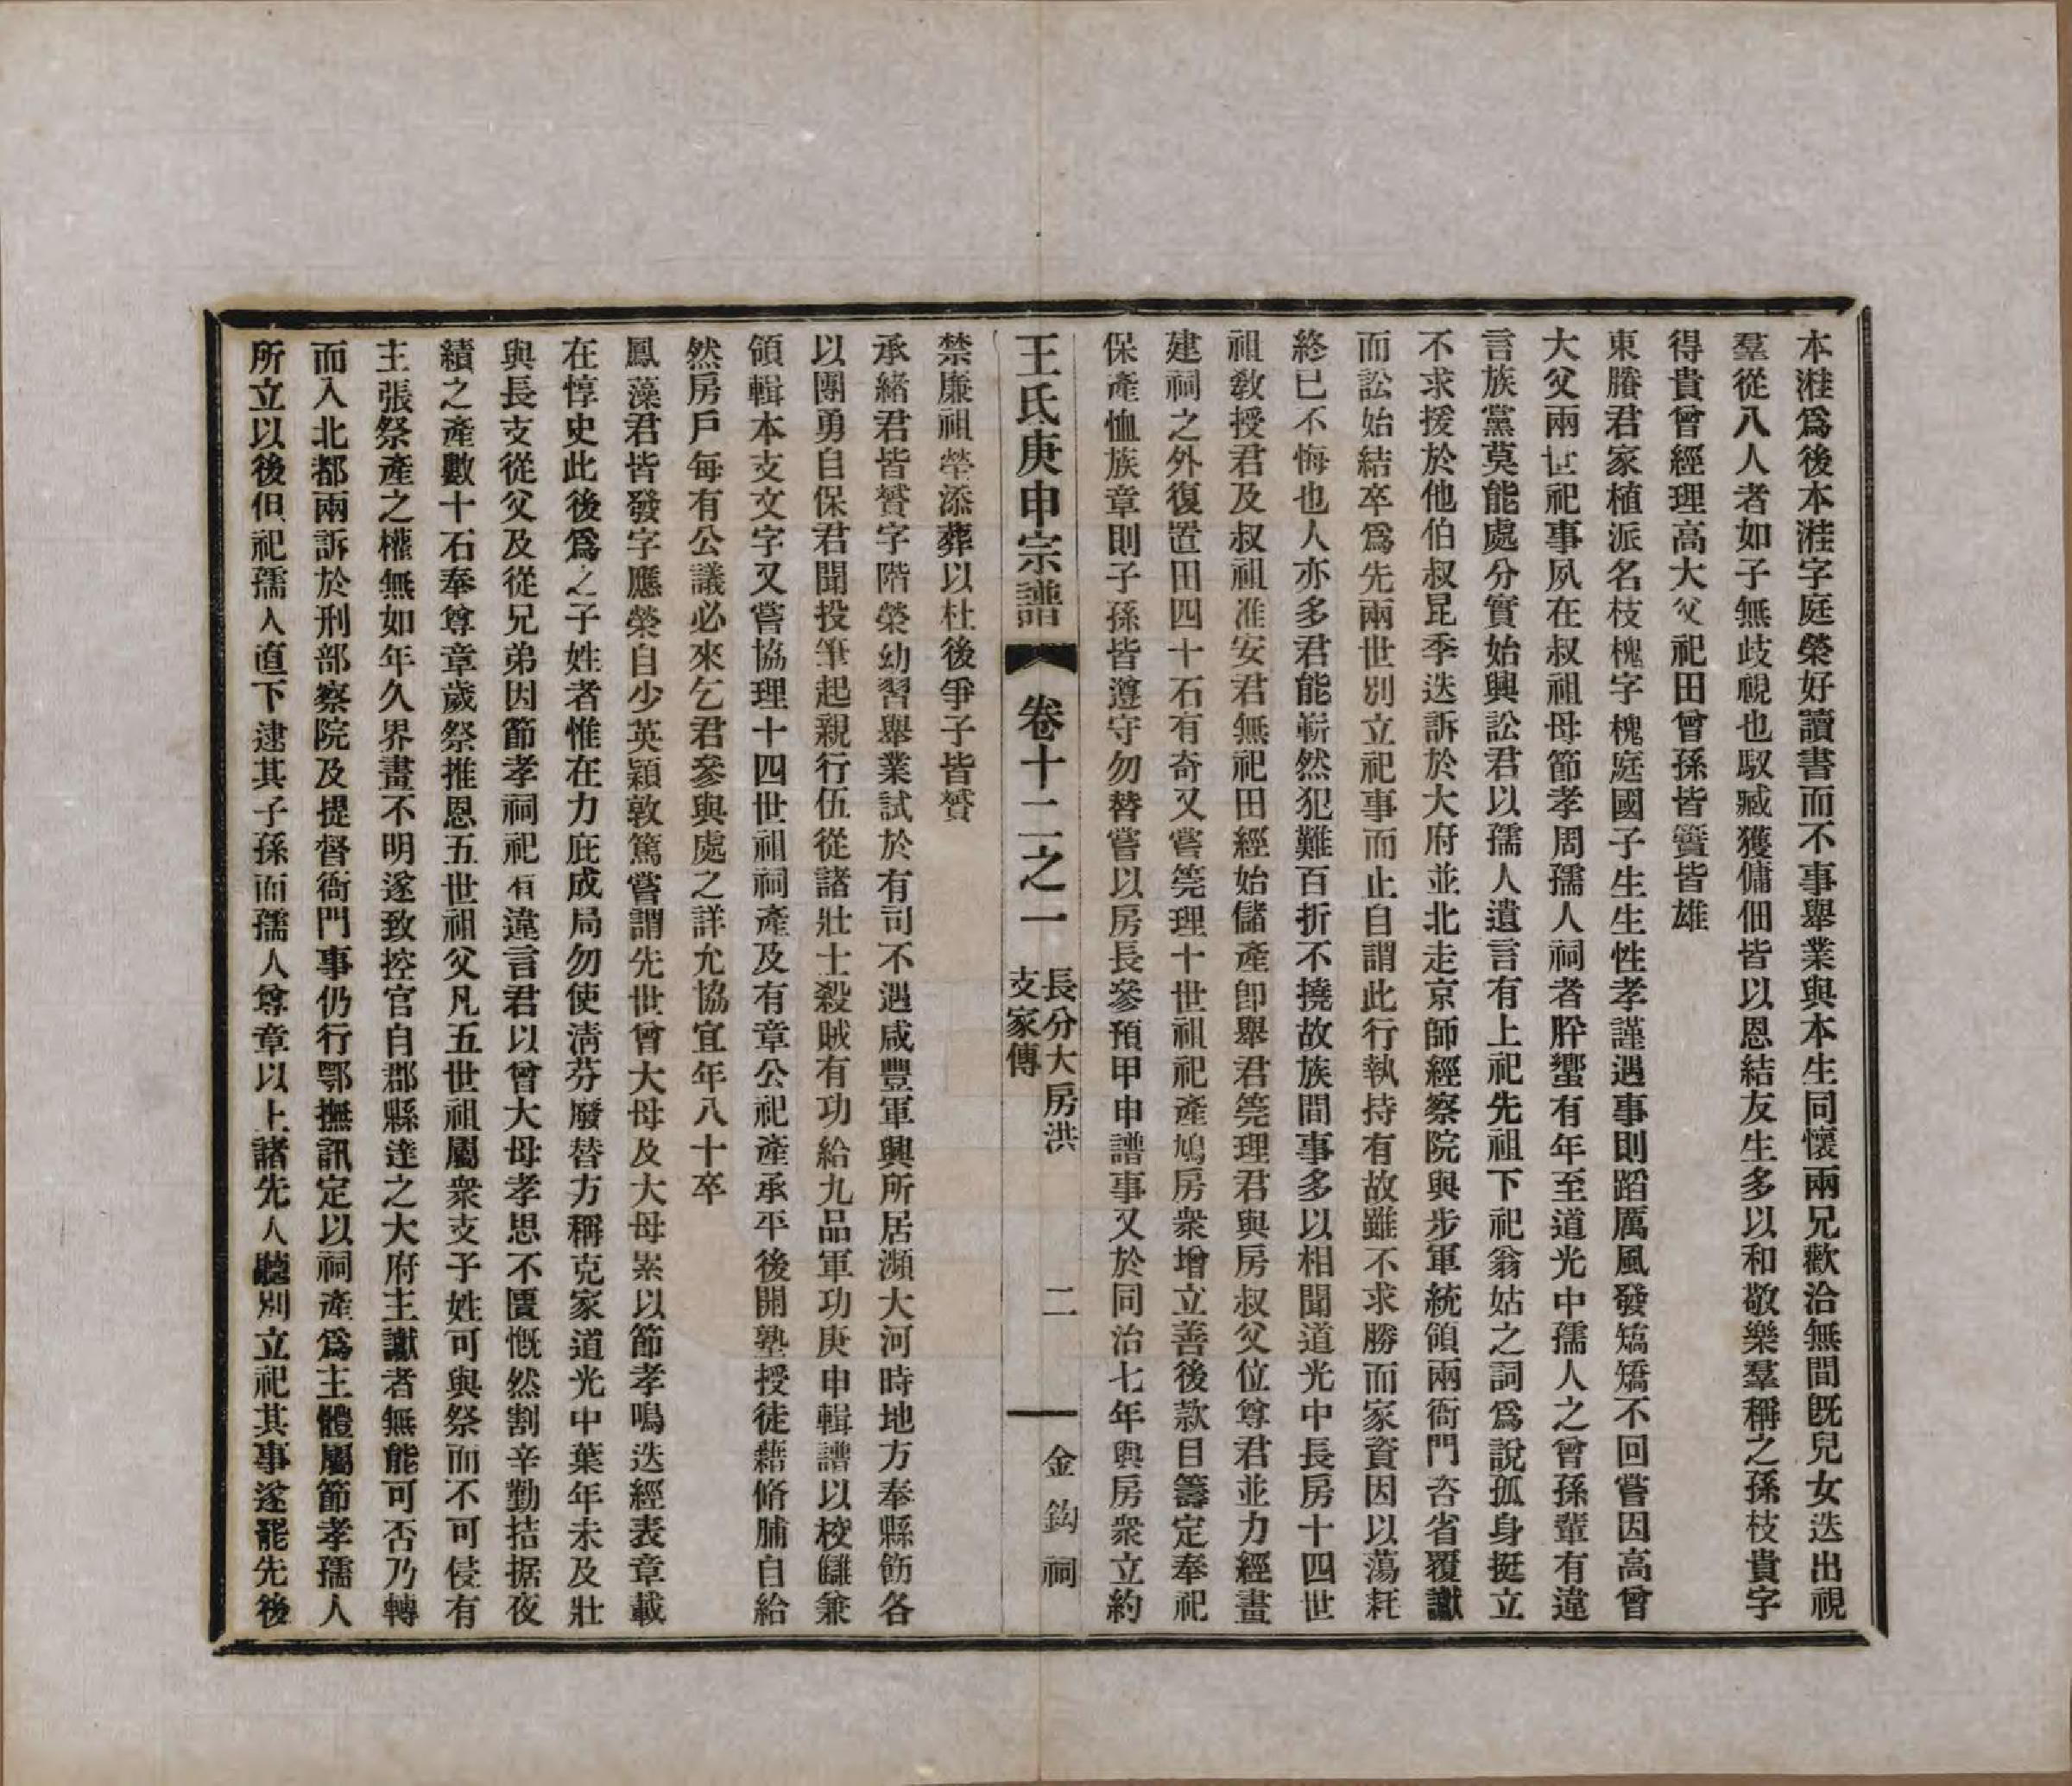 本溎爲後本溎字庭榮好讀書而不事舉業與本生同懷兩兄歡洽無間既兒女迭出視
羣從八人者如子無歧視也馭臧獲傭佃皆以恩結友生多以和敬樂羣稱之孫枝貴字
得貴曾經理高大父祀田曾孫皆賢皆雄
東賸君家植派名枝槐字槐庭國子生生性孝謹遇事則蹈厲風發矯矯不回嘗因高曾
大父兩世祀事夙在叔祖母節孝周孺人祠者肸蠁有年至道光中孺人之曾孫輩有違
言族黨莫能處分實始興訟君以孺人遺言有上祀先祖下祀翁姑之詞爲說孤身挺立
不求援於他伯叔昆季迭訴於大府並北走京師經察院與步軍統領兩衙門咨省覆讞
而訟始結卒爲先兩世別立祀事而止自謂此行執持有故雖不求勝而家資因以蕩耗
終已不悔也人亦多君能嶄然犯難百折不撓故族間事多以相聞道光中長房十四世
祖敎授君及叔祖准安君無祀田經始儲產卽舉君筦理君與房叔父位尊君並力經畫
建祠之外復置田四十石有奇又嘗筦理十世祖祀產鳩房衆增立善後款目籌定奉祀
保產恤族章則子孫皆遵守勿替嘗以房長參預甲申譜事又於同治七年與房衆立約
王氏庚申宗譜 卷十二之一 長分大房洪支家傳 二 金鈎祠
禁廉祖塋添葬以杜後爭子皆贊
承緒君皆贊字階榮幼習舉業試於有司不遇咸豐軍興所居瀕大河時地方奉縣飭各
以團勇自保君聞投筆起親行伍從諸壯士殺賊有功給九品軍功庚申輯譜以校讎兼
領輯本支文字又嘗協理十四世祖祠產及有章公祀產承平後開塾授徒藉脩脯自給
然房戶每有公議必來乞君參與處之詳允協宜年八十卒
鳳藻君皆發字應榮自少英穎敦篤嘗謂先世曾大母及大母累以節孝鳴迭經表章載
在惇史此後爲之子姓者惟在力庇成局勿使淸芬廢替方稱克家道光中葉年未及壯
與長支從父及從兄弟因節孝祠祀有違言君以曾大母孝思不匱慨然割辛勤拮据夜
績之產數十石奉尊章歲祭推恩五世祖父凡五世祖屬衆支子姓可與祭而不可侵有
主張祭產之權無如年久界畫不明遂致控官自郡縣達之大府主讞者無能可否乃轉
而入北都兩訴於刑部察院及提督衙門事仍行鄂撫訊定以祠產爲主體屬節孝孺人
所立以後但祀孺人直下逮其子孫而孺人尊章以上諸先人聽別立祀其事遂罷先後